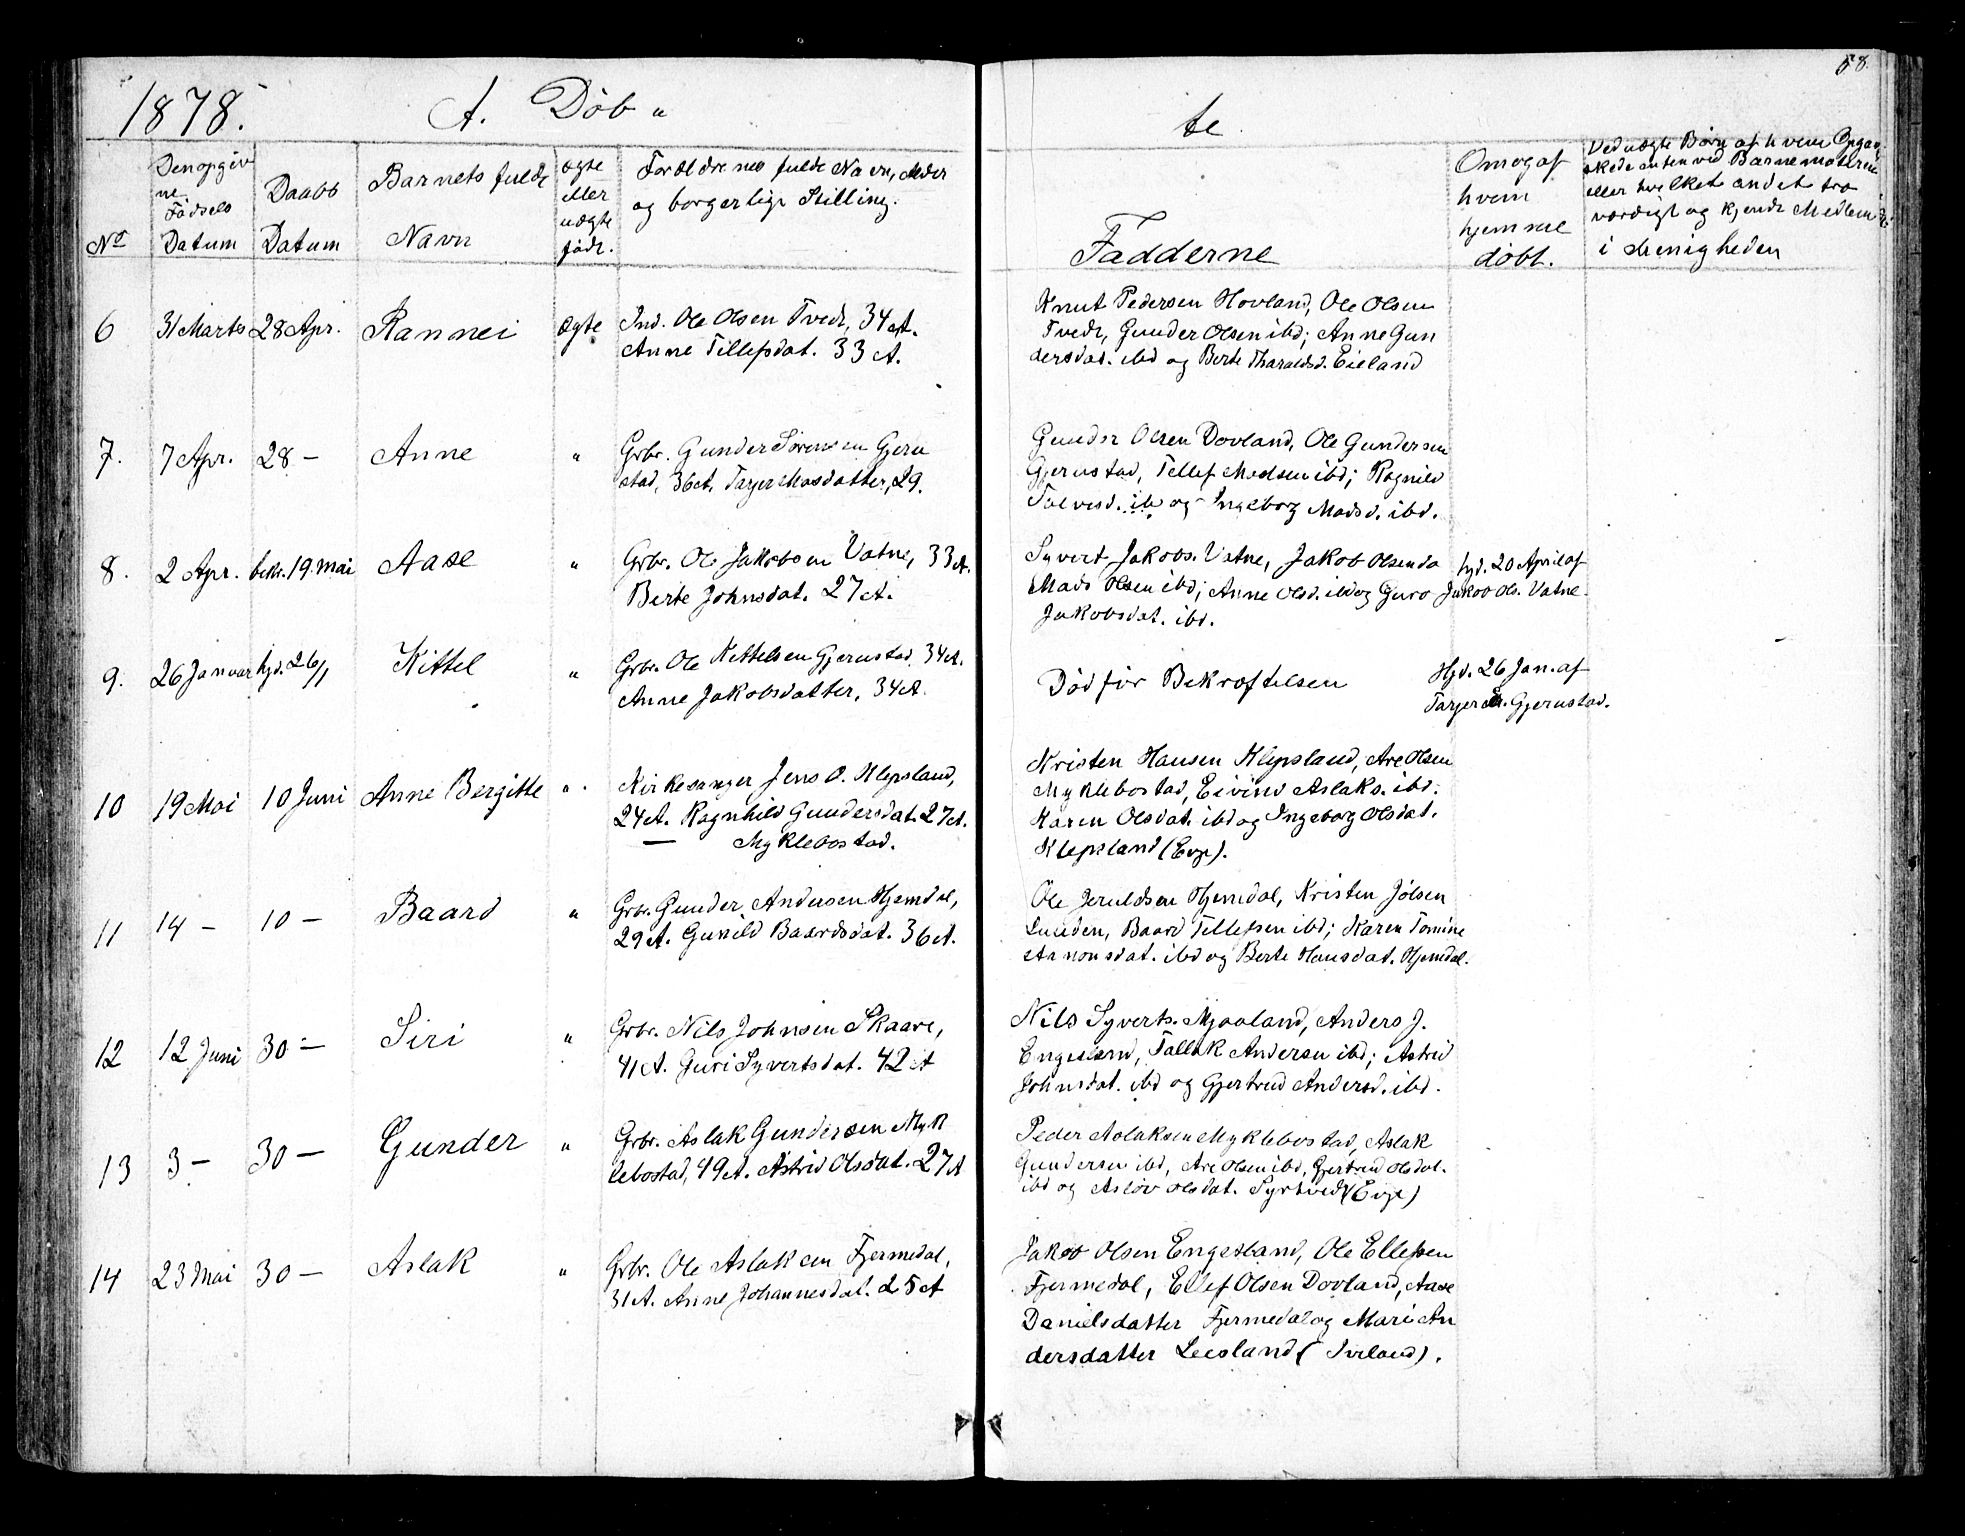 58.
1878. A. Döb " te
No
Den opgiv
ne
Födsels
Datum
Daabs
Datum
Barnets fulde
Navn
Ægte
eller
uægte
født.
Forældrenes fulde Navn, Alder
og borgerlige Stilling.
Fadderne
Om og af
hvem
hjemme
döbt.
Ved uægte Børn af hvem
eller hvilket andet tro
værdigt og kjendt Medlem
i Menigheden
6 31 Marts 28 Apr. Rannei ægte Ind. Ole Olsen Tvedt, 34 A.
Anne Tillefsdat. 33 A.
Knut Pedersen Hovland, Ole Olsen
Tvedt, Gunder Olsen ibd; Anne Gun
dersdat. ibd og Berte Tharaldsd. Eieland
7. 7 Apr. 28 — Anne " Grbr. Gunder Sörensen Gjeru
stad, 36 A, Tarjer Masdatter, 29.
Gunder Olsen Dovland, Ole Gundersen
Gjerustad, Tellef Madsen ibd; Ragnild
Talvesd. ib og Ingeborg Madsd. ibd.
8. 2 Apr. bekr. 19. Mai Aase " Grbr. Ole Jakobsen Vatne, 33 A.
Berte Johnsdat. 27 A.
Syvert Jakobs. Vatne, Jakob Olsen do
Mads Olsen ibd; Anne Olsd. ibd og Guro
Jakobsdat. ibd.
hjd. 20 April af
Jakob Ols. Vatne.
9. 26 Januar hjd. 26/1 Kittel " Grbr. Ole Kettelsen Gjerustad, 34 A.
Anne Jakobsdatter, 34 A.
Död för Bekræftelsen
Hjd. 26 Jan. af
Tarjer Gjerustad.
10 19 Mai 10 Juni Anne Bergitte " Kirkesanger Jens O. Klepsland,
24 A. Ragnhild Gundersdat. 27 A.
— Myklebostad.
Kristen Hansen Klepsland, Are Olsen
Myklebostad, Eivind Aslaks. ibd.
Karen Olsdat. ibd og Ingeborg Olsdat.
Klepsland (Evje).
11 14 — 10 — Baard " Grbr. Gunder Andersen Hjemdal,
29 A. Gunild Baardsdat. 36 A.
Ole Jeruldsen Hjemdal, Kristen Jölsen
Lunden, Baard Tellefsen ibd; Karen Tomine
Aanonsdat. ibd og Berte Hansdat. Hjemdal.
12 12 Juni 30 — Siri " Grbr. Nils Johnsen Skaare,
41 A. Guri Syvertsdat. 42 A
Nils Syverts. Mjaaland, Anders J.
Engesland, Tallak Andersen ibd; Astrid
Johnsdat. ibd og Gjertrud Andersd. ibd.
13 3 — 30 — Gunder " Grbr. Aslak Gundersen Myk
lebostad, 49 A. Astrid Olsdat. 27 A
Peder Aslaksen Myklebostad, Aslak
Gundersen ibd, Are Olsen ibd, Gjertrud Olsdat.
ibd og Aslöv Olsdat. Syrtveit (Evje)
14 23 Mai 30 — Aslak " Grbr. Ole Aslaksen Fjermedal,
31 A. Anne Johannesdat. 25 A
Jakob Olsen Engesland, Ole Ellefsen
Fjermedal, Ellef Olsen Dovland, Aase
Danielsdatter Fjermedal og Mari An
dersdatter Leesland (Iveland).